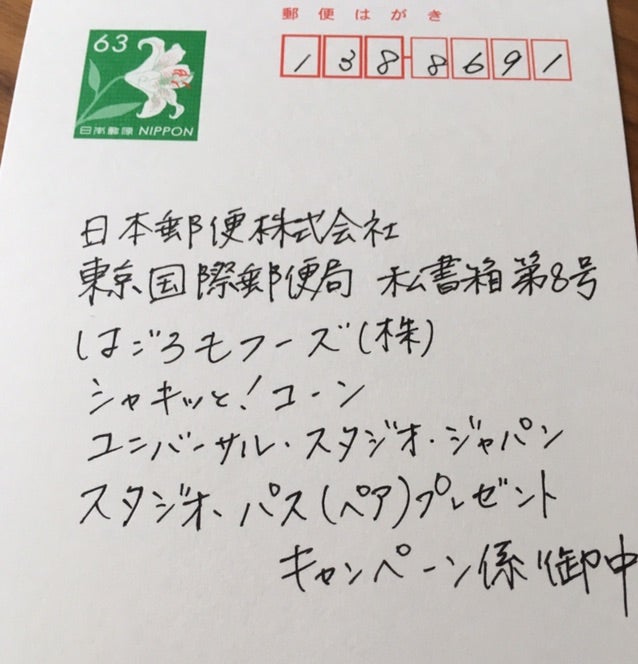 郵便はがき
63
日本郵便 NIPPON
138-8691
日本郵便株式会社
東京国際郵便局 私書箱第8号
はごろもフーズ(株)
シャキッと!コーン
ユニバーサル・スタジオ・ジャパン
スタジオ、パス(ペア)プレゼント
キャンペーン係御中